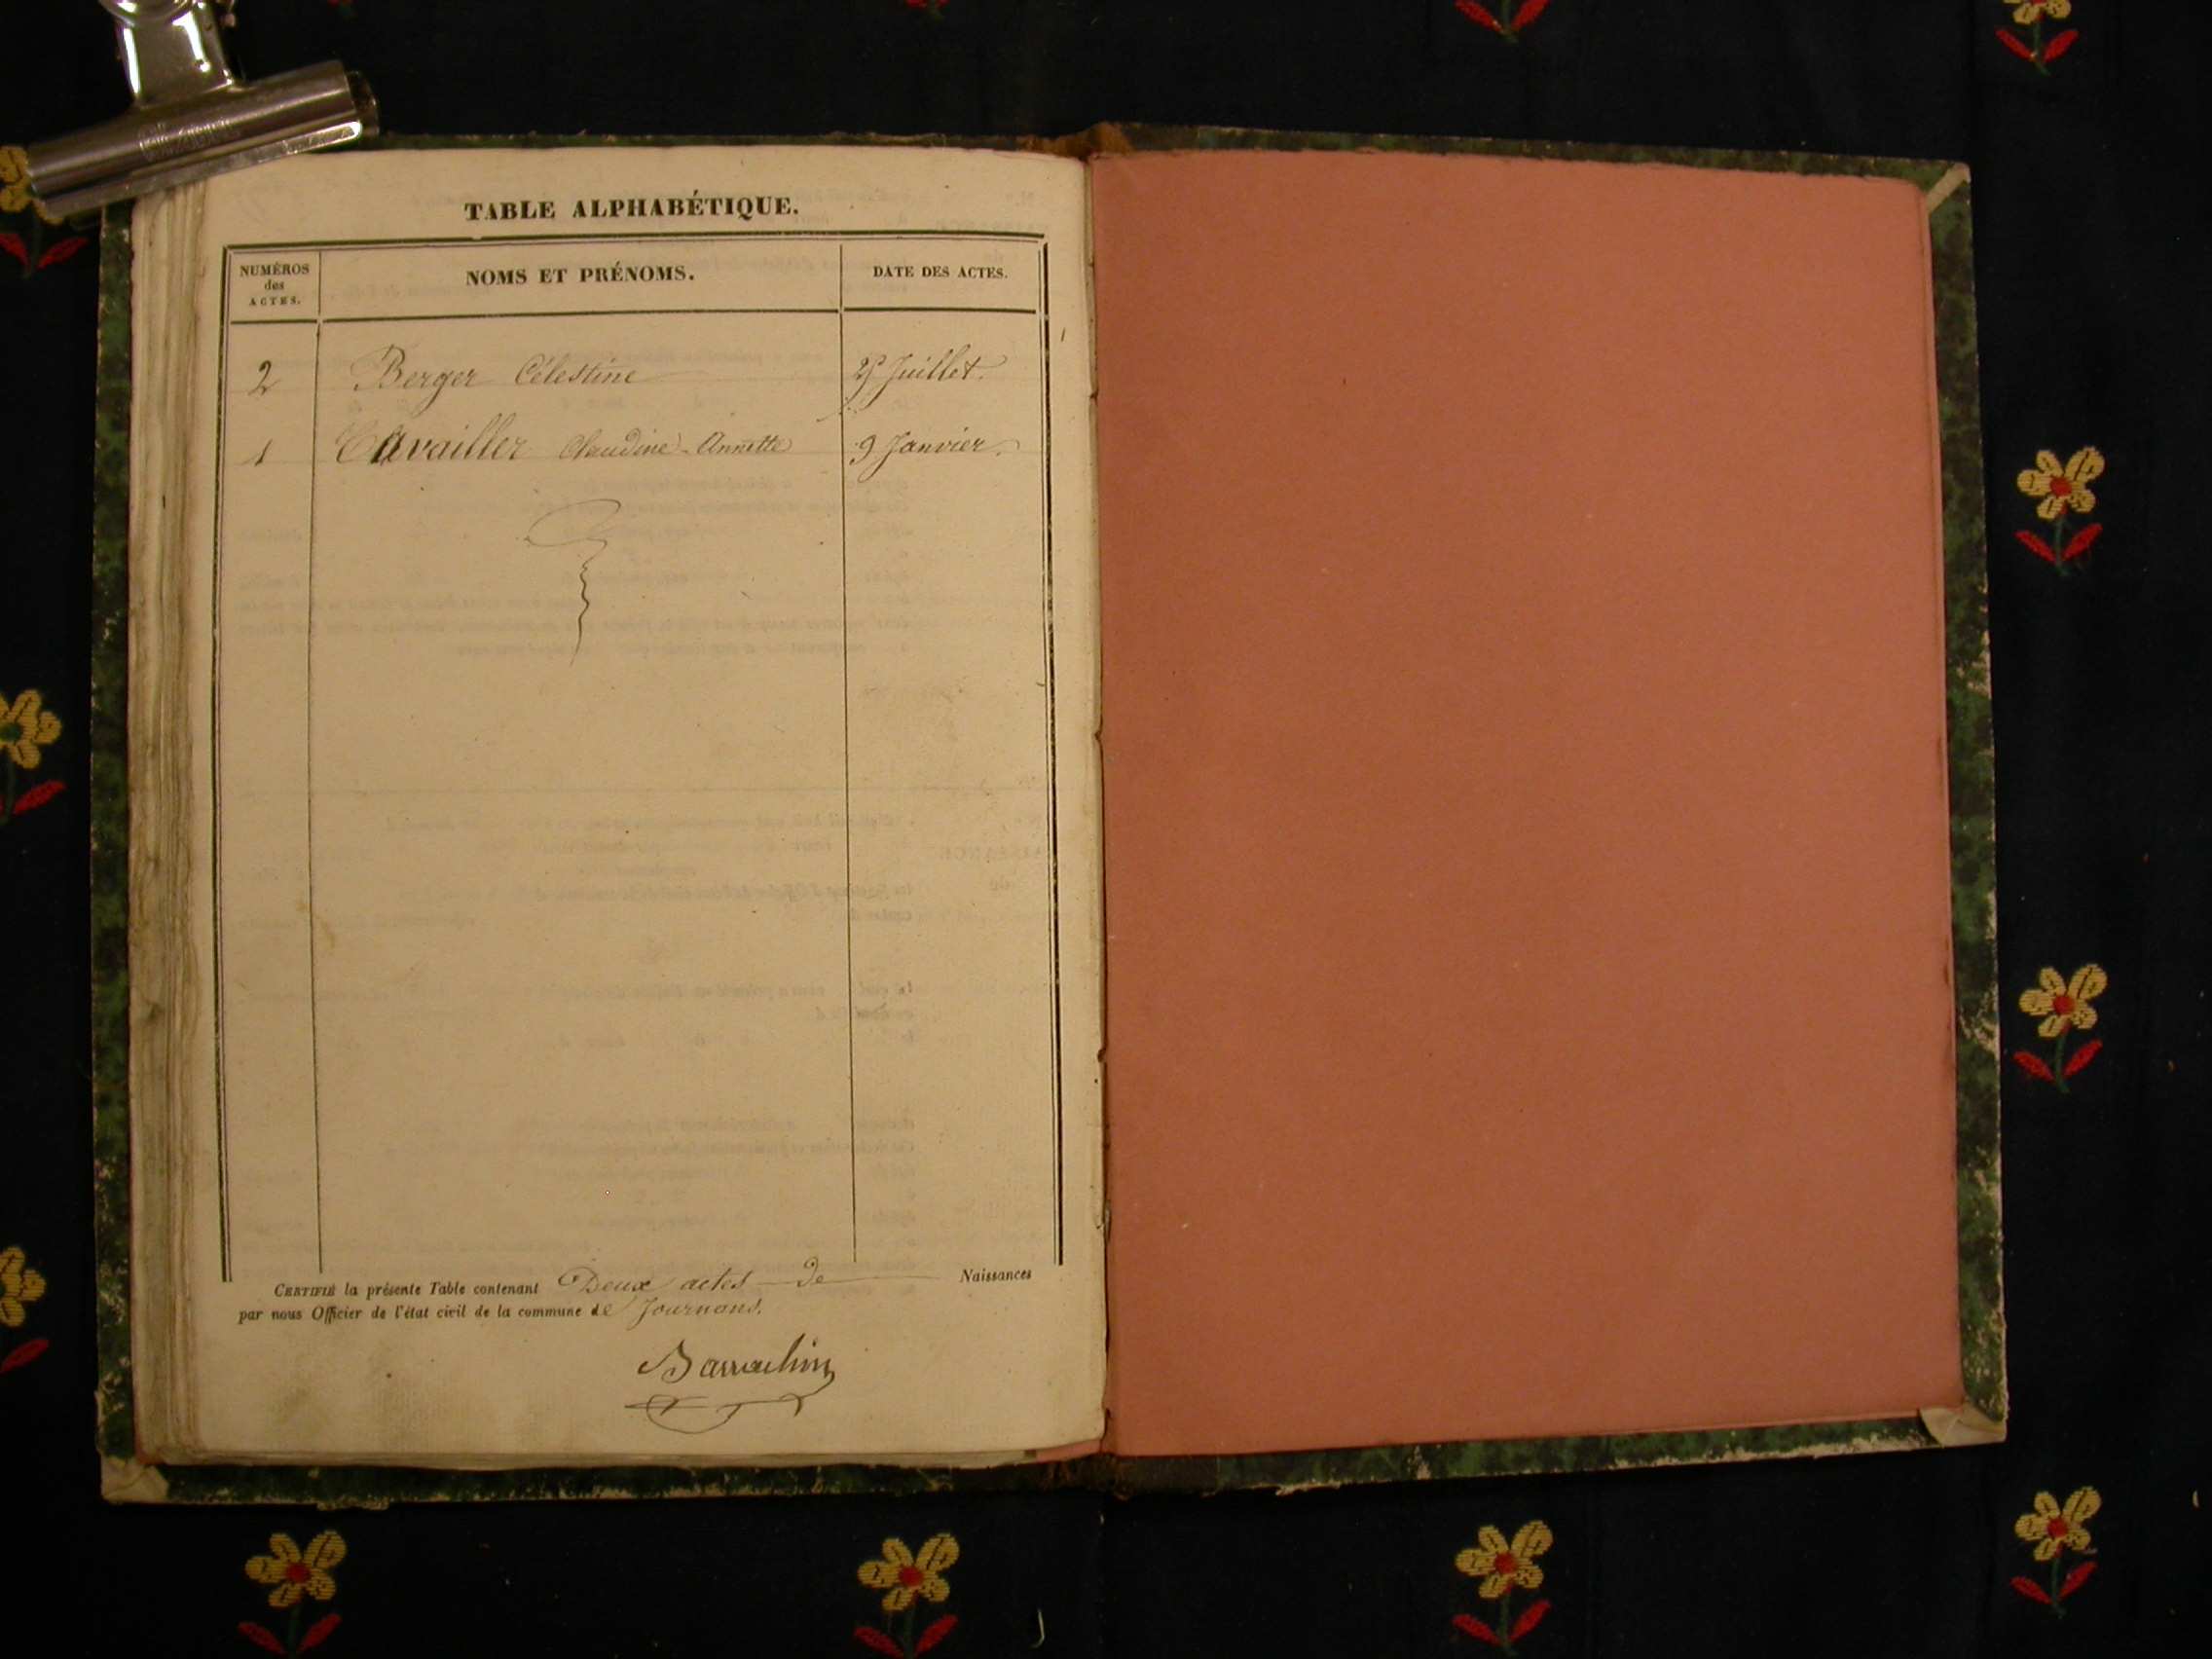 TABLE ALPHABÉTIQUE.
NUMÉROS
des
ACTES.
NOMS ET PRÉNOMS.
DATE DES ACTES.
2 Berger Célestine Juillet.
1 Cavailler Claudine-Annette 9 Janvier.
CERTIFIÉ la présente Table contenant Deux actes de Naissances
par nous Officier de l'état civil de la commune de Journans.